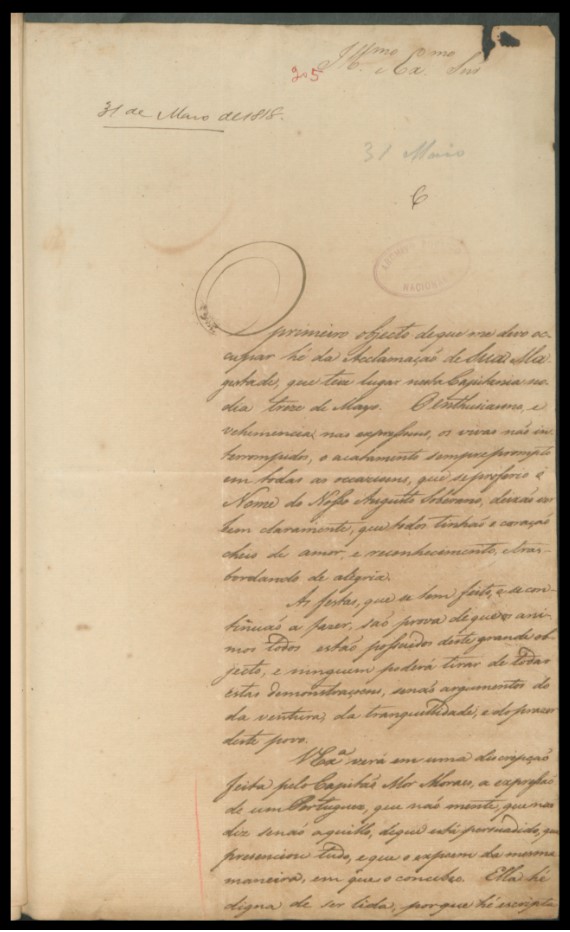 Ill.mo Ex.mo Snr
31 de Maio de 1818.
31 Maio
NACIONAL
O primeiro objecto de que me devo oc-
cupar hé da Acclamação de Sua Ma
gestade, que teve lugar nesta Capitania no
dia treze de Mayo. O enthusiasmo, e
vehemencia nas expressoens, os vivas não in
terrompidos, o acatamento sempre prompto
em todas as occasioens, que se proferio o
Nome do Nosso Augusto Soberano, deixão
bem claramente, que todos tinhão o coração
cheio de amor, e reconhecimento, e tras-
bordando de alegria.
As festas, que se tem feito, e se con-
tinuão a fazer, são prova de que os ani-
mos todos estão possuidos deste grande ob-
jecto, e ninguem poderá tirar de todas
estas demonstraçoens, senão argumentos
da ventura, da tranquillidade, e do prazer
deste povo.
V Ex.a verá em uma descripção
feita pelo Capitão Mor Moraes, a expressão
de um Portuguez, que não mente, que nao
diz senão aquillo, de que está persuadido, que
presenciou tudo, e que o expoem da mesma
maneira, em que o concebe. Ella hé
digna de ser lida, porque hé escripta